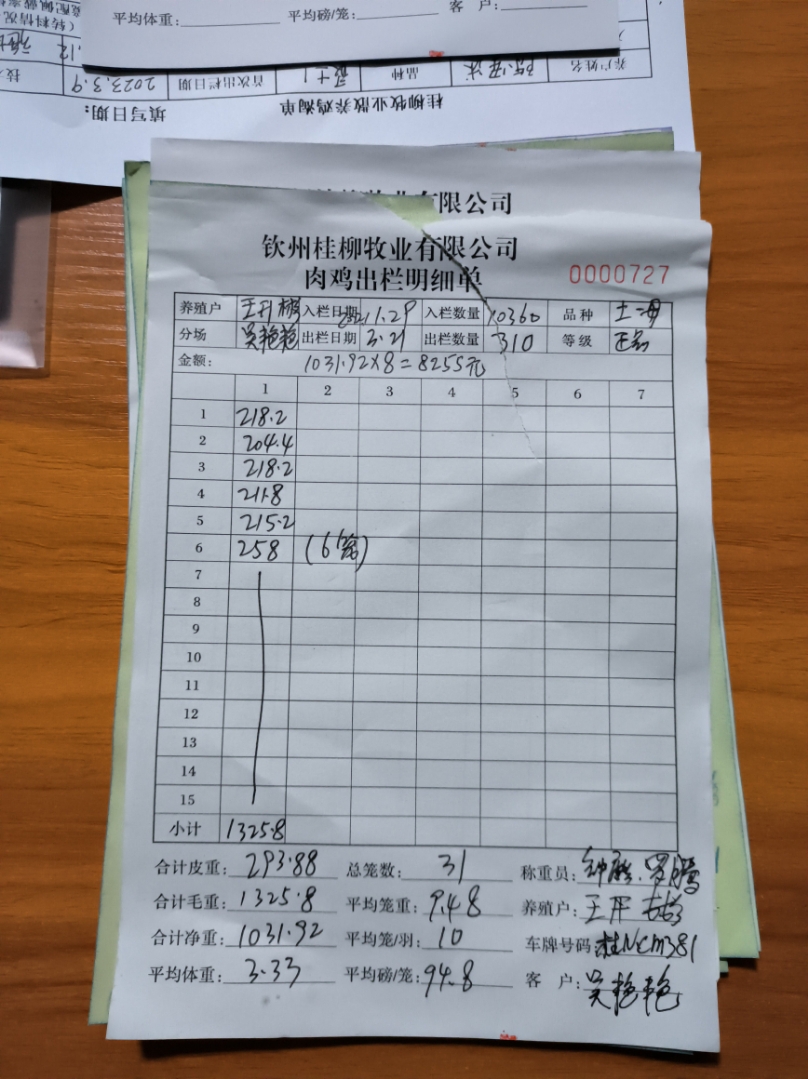 平均体重: 平均磅/笼: 客 户:
养户姓名 品种 首次出栏日期 2023.3.9
桂柳牧业散养鸡淘单 填写日期:
有限公司
钦州桂柳牧业有限公司
肉鸡出栏明细单 0000727
养殖户 入栏日期 1.29 入栏数量 10360 品种 土
分场 吴艳艳 出栏日期 3.21 出栏数量 310 等级 正品
金额: 1031.92×8=8255元
1 2 3 4 5 6 7
1 218.2
2 204.4
3 218.2
4 211.8
5 215.2
6 258 (6笼)
7
8
9
10
11
12
13
14
15
小计 1325.8
合计皮重: 293.88 总笼数: 31 称重员:
合计毛重: 1325.8 平均笼重: 9.48 养殖户:
合计净重: 1031.92 平均笼/羽: 10 车牌号码: 桂NCM381
平均体重: 3.33 平均磅/笼: 94.8 客 户: 吴艳艳